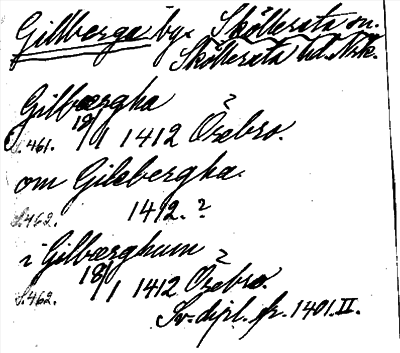 Gillberga by. Sköllersta sn.
Sköllersta hd. Nrk.
Gilbærgha ?
S. 461. 18/1 1412 Örebro.
om Gilebergha.
S. 462. 1412. ?
i Gilbærghum ?
S. 462. 18/1 1412 Örebro.
Sv. dipl. fr. 1401. II.